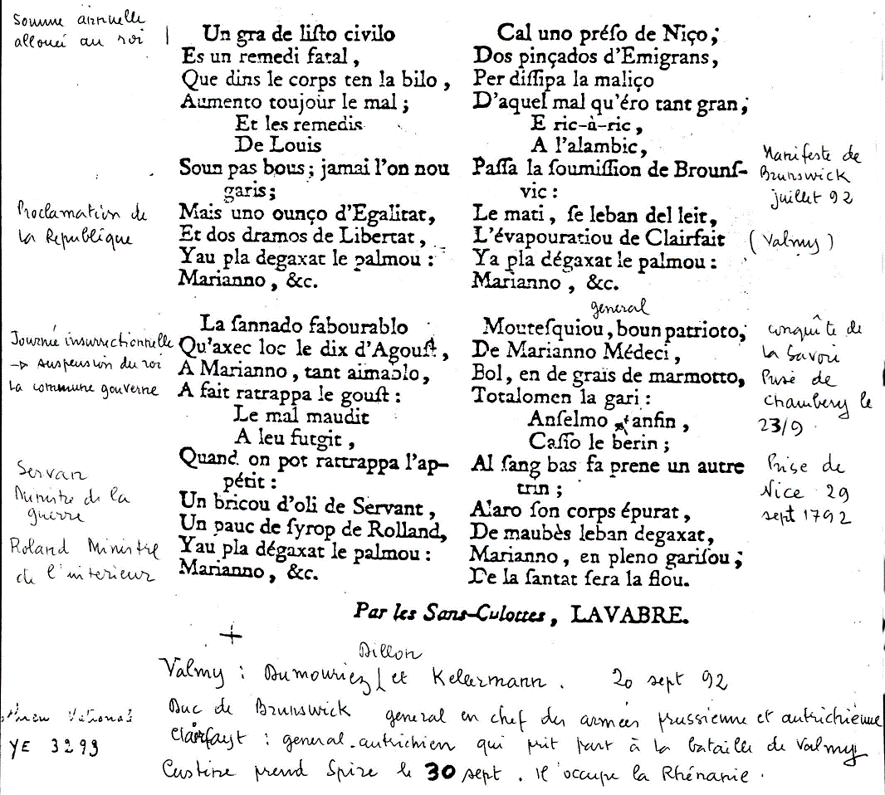 Somme annuelle
allouée au roi
Un gra de liſto civilo
Es un remedi fatal,
Que dins le corps ten la bilo,
Aumento toujour le mal;
Et les remedis
De Louis
Soun pas bous; jamai l'on nou
garis;
Mais uno ounço d'Egalitat,
Et dos dramos de Libertat,
Yau pla degaxat le palmou:
Marianno, &c.
Proclamation de
la République
La ſannado fabourablo
Qu'axec loc le dix d'Agouſt,
A Marianno, tant aimablo,
A fait ratrappa le gouſt:
Le mal maudit
A leu futgit,
Quand on pot rattrappa l'ap-
pétit:
Un bricou d'oli de Servant,
Un pauc de ſyrop de Rolland,
Yau pla dégaxat le palmou:
Marianno, &c.
Journée insurrectionnelle
→ suspension du roi
la commune gouverne
Servan
Ministre de la
guerre
Roland Ministre
de l'interieur
Cal uno préſo de Niço;
Dos pinçados d'Emigrans,
Per diſſipa la maliço
D'aquel mal qu'éro tant gran;
E ric-à-ric,
A l'alambic,
Paſſa la ſoumiſſion de Brounſ-
vic:
Le mati, ſe leban del leit,
L'évapouratiou de Clairfait
Ya pla dégaxat le palmou:
Marianno, &c.
Manifeste de
Brunswick
juillet 92
(Valmy)
general
Mouteſquiou, boun patrioto,
De Marianno Médeci,
Bol, en de grais de marmotto,
Totalomen la gari:
Anſelmo anfin,
Caſſo le berin;
Al ſang bas fa prene un autre
trin;
Alaro ſon corps épurat,
De maubès leban degaxat,
Marianno, en pleno gariſou;
De la ſantat ſera la flou.
conquête de
la Savoie
Prise de
Chambery le
23/9.
Prise de
Nice 29
sept 1792
Par les Sans-Culottes, LAVABRE.
Dillon
Valmy: Dumouriez et Kellermann. 20 sept 92
Duc de Brunswick general en chef des armées prussienne et autrichienne
Clairfayt: general autrichien qui prit part à la bataille de Valmy
Custine prend Spire le 30 sept. Il occupe la Rhénanie.
YE 3293